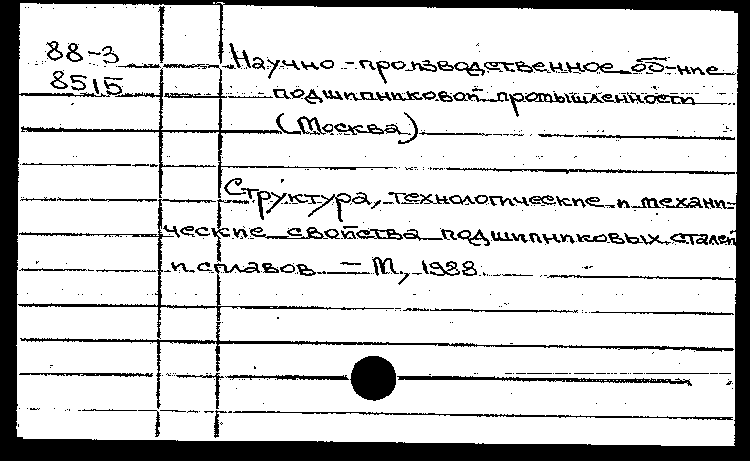 88-3
8515
Научно-производственное об-ние
подшипниковой промышленности
(Москва)
Структура, технологические и механи-
ческие свойства подшипниковых сталей
и сплавов. — М., 1988.